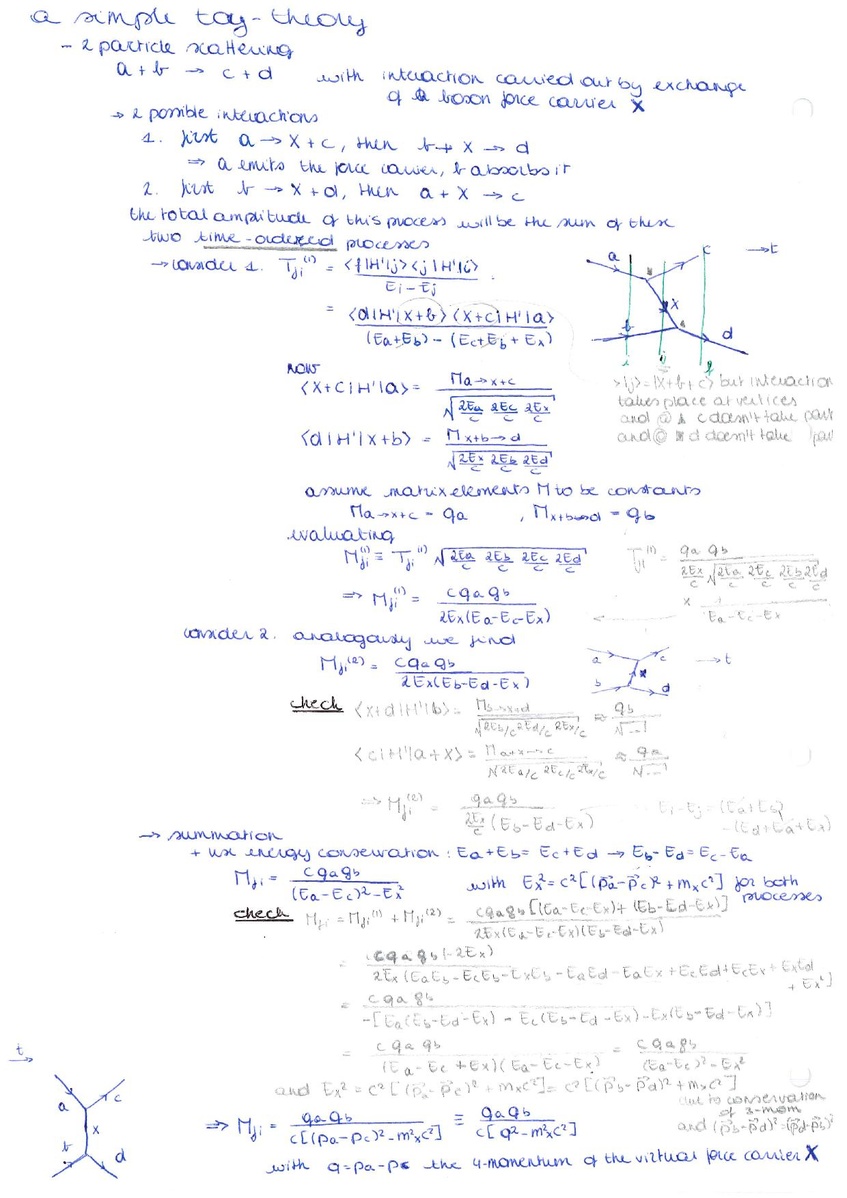 a simple toy-theory
- 2 particle scattering
a + b → c + d with interaction carried out by exchange
of a boson force carrier X
→ 2 possible interactions
1. first a → X + c, then b + X → d
⇒ a emits the force carrier, b absorbs it
2. first b → X + d, then a + X → c
the total amplitude of this process will be the sum of these
two time-ordered processes
→ consider 1. Tji⁽¹⁾ = <f|H'|j><j|H'|i> / Ei - Ej
= <d|H'|X+b><X+c|H'|a> / (Ea+Eb) - (Ec+Eb+Ex)
a c → t
X
b d
i j f
now
<X+c|H'|a> = Ma→x+c / √(2Ea/c 2Ec/c 2Ex/c)
→ |j> = |X+b+c> but interaction
takes place at vertices
and @ a c doesn't take part
<d|H'|X+b> = Mx+b→d / √(2Ex/c 2Eb/c 2Ed/c)
assume matrix elements M to be constants
Ma→x+c = ga , Mx+b→d = gb
evaluating
Mji⁽¹⁾ = Tji⁽¹⁾ √(2Ea/c 2Eb/c 2Ec/c 2Ed/c)
Tji⁽¹⁾ = ga gb / 2Ex/c √(2Ea/c 2Ec/c 2Eb/c 2Ed/c)
x 1 / Ea-Ec-Ex
⇒ Mji⁽¹⁾ = c ga gb / 2Ex(Ea-Ec-Ex)
consider 2. analogously we find
Mji⁽²⁾ = c ga gb / 2Ex(Eb-Ed-Ex)
a c → t
x
b d
check <x+d|H'|b> = Mb→x+d / √(2Eb/c 2Ed/c 2Ex/c) ≈ gb / √...
<c|H'|a+x> = Ma+x→c / √(2Ea/c 2Ec/c 2Ex/c) ≈ ga / √...
⇒ Mji⁽²⁾ = ga gb / 2Ex/c (Eb-Ed-Ex)
Ei-Ej = (Ea+Eb)
-(Ed+Ea+Ex)
→ summation
+ use energy conservation: Ea+Eb = Ec+Ed → Eb-Ed = Ec-Ea
Mji = c ga gb / (Ea-Ec)²-Ex² with Ex² = c²[(p⃗a-p⃗c)² + mx²c²] for both
processes
check Mji = Mji⁽¹⁾ + Mji⁽²⁾ = c ga gb [(Ea-Ec-Ex)+(Eb-Ed-Ex)] / 2Ex(Ea-Ec-Ex)(Eb-Ed-Ex)
= c ga gb (-2Ex) / 2Ex(EaEb-EcEb-ExEb-EaEd-EaEx+EcEd+EcEx+ExEd
+Ex²)
= c ga gb / -[Ea(Eb-Ed-Ex) - Ec(Eb-Ed-Ex) - Ex(Eb-Ed-Ex)]
= c ga gb / (Ea-Ec+Ex)(Ea-Ec-Ex) = c ga gb / (Ea-Ec)²-Ex²
and Ex² = c²[(p⃗a-p⃗c)² + mx²c²] = c²[(p⃗b-p⃗d)² + mx²c²]
due to conservation
of 3-mom
and (p⃗b-p⃗d)² = (p⃗d-p⃗b)²
t
a c
x
b d
⇒ Mji = ga gb / c[(pa-pc)²-m²xc²] ≡ ga gb / c[q²-m²xc²]
with q = pa-pc the 4-momentum of the virtual force carrier X